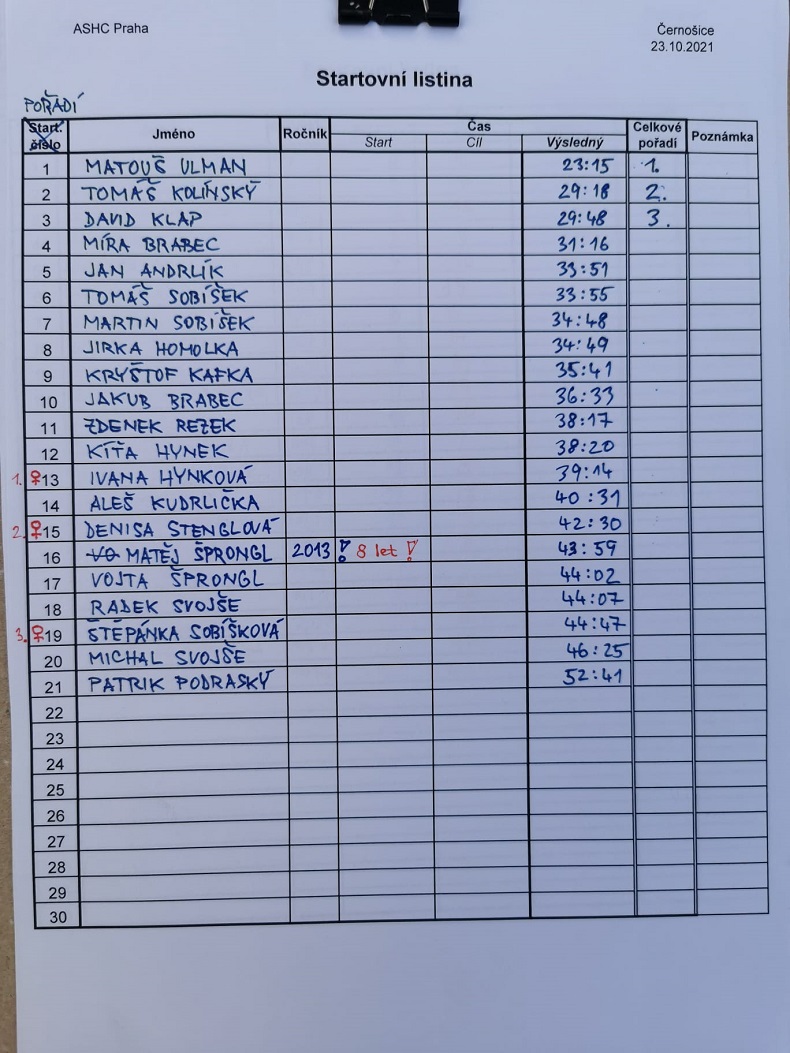 ASHC Praha
Černošice
23.10.2021
Startovní listina
POŘADÍ
Start. číslo Jméno Ročník Čas Start Cíl Výsledný Celkové pořadí Poznámka
1 MATOUŠ ULMAN 23:15 1.
2 TOMÁŠ KOLÍNSKÝ 29:18 2.
3 DAVID KLAP 29:48 3.
4 MÍRA BRABEC 31:16
5 JAN ANDRLÍK 33:51
6 TOMÁŠ SOBÍŠEK 33:55
7 MARTIN SOBÍŠEK 34:48
8 JIRKA HOMOLKA 34:49
9 KRYŠTOF KAFKA 35:41
10 JAKUB BRABEC 36:33
11 ZDENEK REZEK 38:17
12 KÍŤA HYNEK 38:20
1. ♀13 IVANA HYNKOVÁ 39:14
14 ALEŠ KUDRLIČKA 40:31
2. ♀15 DENISA STENGLOVÁ 42:30
16 VO MATĚJ ŠPRONGL 2013 ! 8 let ! 43:59
17 VOJTA ŠPRONGL 44:02
18 RADEK SVOJŠE 44:07
3. ♀19 ŠTĚPÁNKA SOBÍŠKOVÁ 44:47
20 MICHAL SVOJŠE 46:25
21 PATRIK PODRASKÝ 52:41
22
23
24
25
26
27
28
29
30